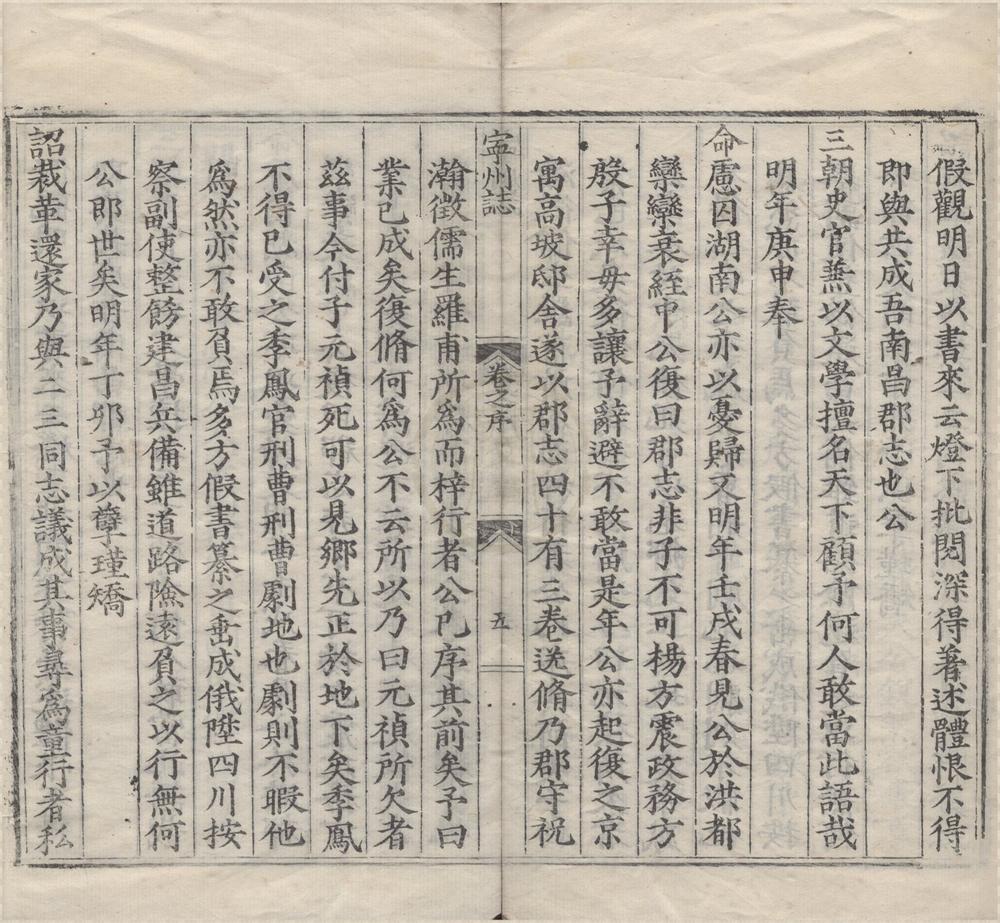 假觀明日以書來云燈下批閱深得著述體恨不得
即與共成吾南昌郡志也公
三朝史官兼以文學擅名天下顧予何人敢當此語哉
明年庚申奉
命慮囚湖南公亦以憂歸又明年壬戌春見公於洪都
欒欒衰絰中公復曰郡志非子不可楊方震政務方
殷子幸毋多讓予辭避不敢當是年公亦起復之京
寓高坡邸舍遂以郡志四十有三卷送脩乃郡守祝
寧州誌
卷之序
五
瀚徵儒生羅甫所為而梓行者公已序其前矣予曰
業已成矣復脩何為公不云所以乃曰元禎所欠者
茲事今付子元禎死可以見鄉先正於地下矣季鳳
不得已受之季鳳官刑曹刑曹劇地也劇則不暇他
為然亦不敢負焉多方假書纂之垂成俄陞四川按
察副使整飭建昌兵備雖道路險遠負之以行無何
公即世矣明年丁卯予以孽瑾矯
詔裁革還家乃與二三同志議成其事尋為童行者私